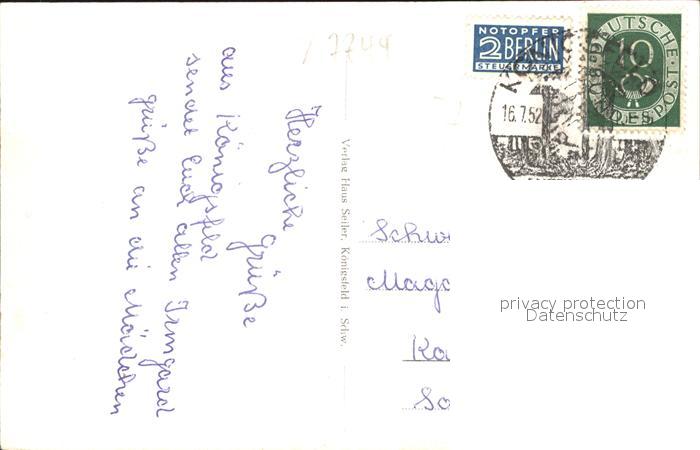 Herzliche Grüße
aus Königsfeld
sendet Euch allen Irmgard
Grüße an die Mädchen
Verlag Haus Seiler, Königsfeld i. Schw.
NOTOPFER
2 BERLIN
STEUERMARKE
DEUTSCHE
10
BUNDESPOST
16.7.52
Schw
Magd
Ka
So
privacy protection
Datenschutz